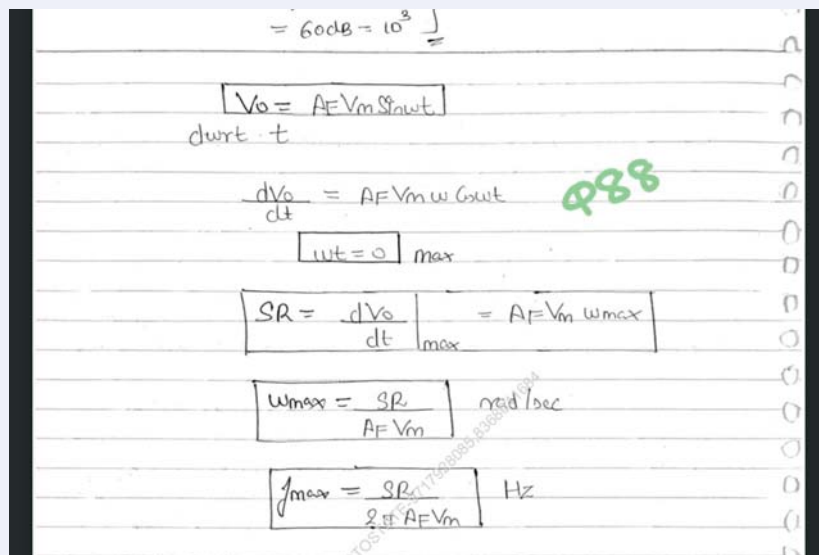 = 60dB = 10³ ]
Vo = AF Vm Sinwt
dwrt. t
dVo/dt = AF Vm w Coswt
Q88
wt = 0 max
SR = dVo/dt |max = AF Vm wmax
wmax = SR/AF Vm rad/sec
fmax = SR/2π AF Vm Hz